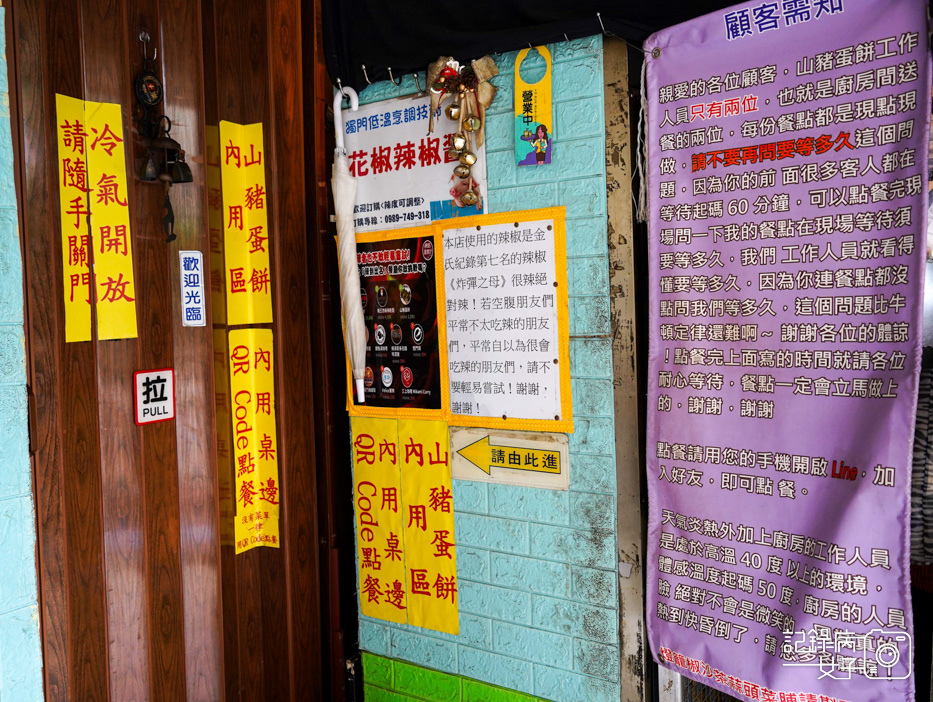 冷氣開放
請隨手關門
歡迎光臨
拉
PULL
山豬蛋餅
內用區
內用桌邊
QR Code點餐
沒有菜單
一律
用QR Code點餐
獨門低溫烹調技術
花椒辣椒醬
歡迎訂購<辣度可調整>
訂購專線：0989-749-318
營業中
本店使用的辣椒是金
氏紀錄第七名的辣椒
《炸彈之母》很辣絕
對辣！若空腹朋友們
平常不太吃辣的朋友
們，平常自以為很會
吃辣的朋友們，請不
要輕易嘗試！謝謝，
謝謝！
請由此進
山豬蛋餅
內用區
內用桌邊
QR Code點餐
顧客需知
親愛的各位顧客，山豬蛋餅工作
人員只有兩位，也就是廚房間送
餐的兩位，每份餐點都是現點現
做，請不要再問要等多久這個問
題，因為你的前面很多客人都在
等待起碼 60 分鐘，可以點餐完現
場問一下我的餐點在現場等待須
要等多久，我們 工作人員就看得
懂要等多久，因為你連餐點都沒
點問我們等多久，這個問題比牛
頓定律還難啊～ 謝謝各位的體諒
！點餐完上面寫的時間就請各位
耐心等待，餐點一定會立馬做上
的，謝謝，謝謝
點餐請用您的手機開啟 Line，加
入好友，即可點 餐。
天氣炎熱外加上廚房的工作人員
是處於高溫 40 度 以上的環境，
體感溫度起碼 50 度，廚房的人員
臉 絕對不會是微笑的，
熱到快昏倒了，請您多
記錄病車的
女子療